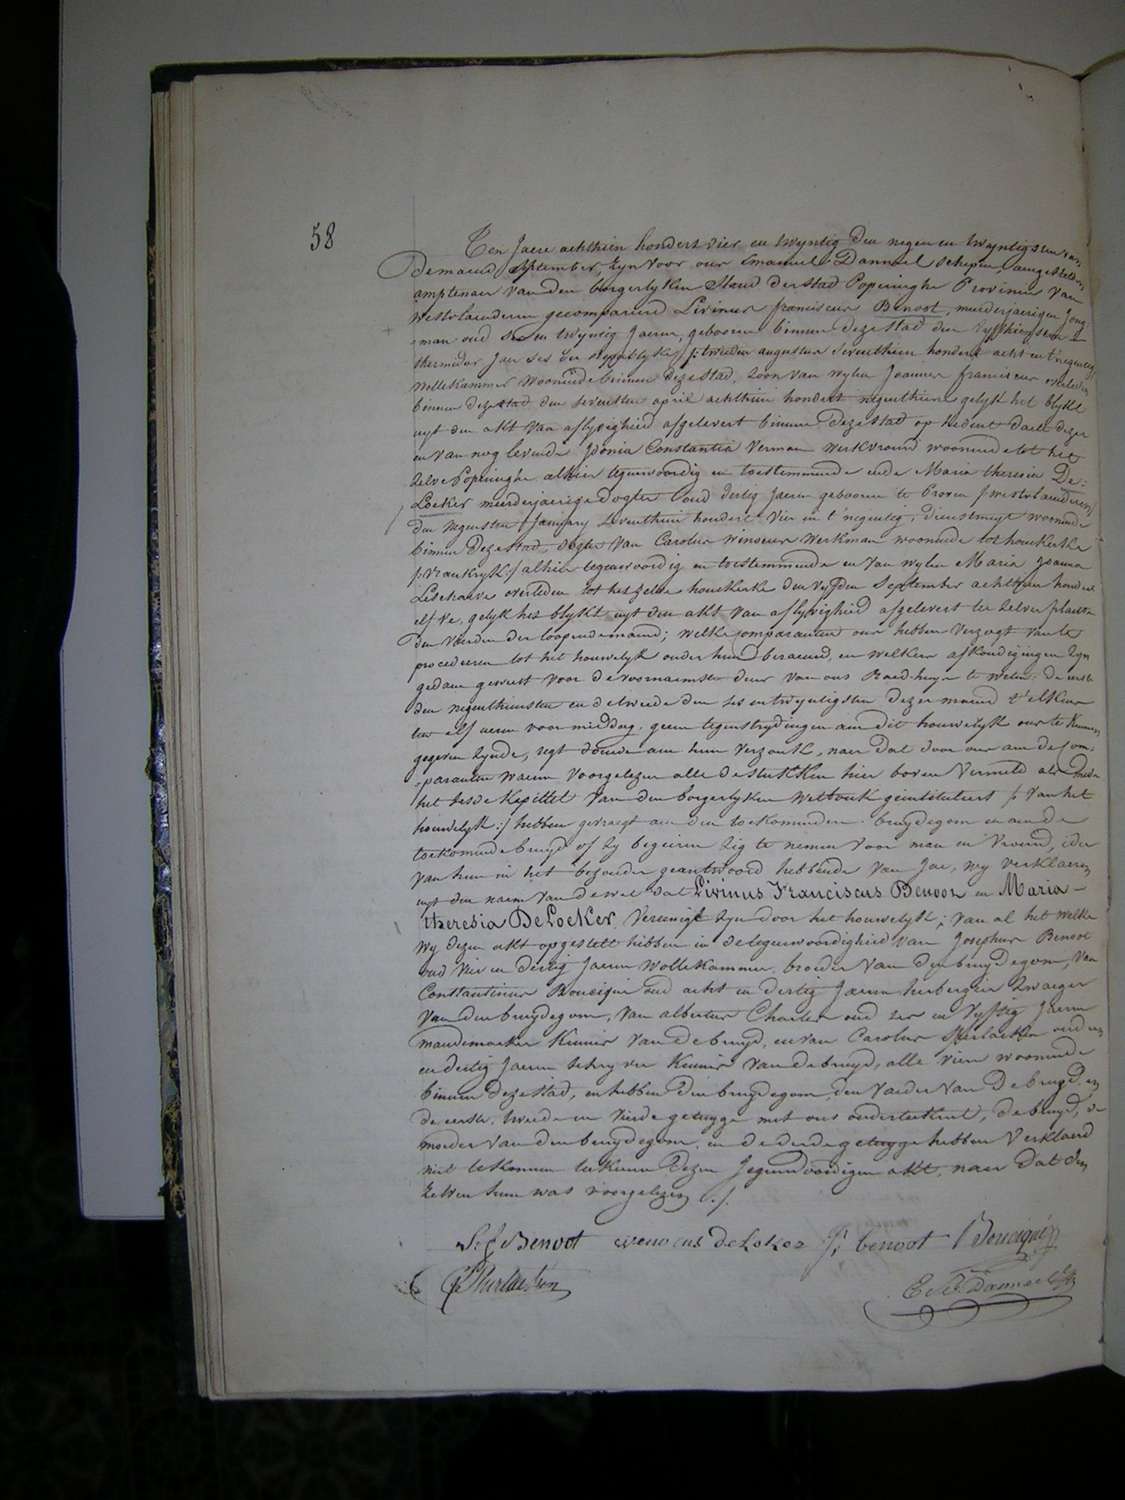 58
Ten Jaere achthien hondert vier en twyntig den negen en twyntigsten van
De maend September, zyn voor ons Emanuel Dammel schepen aengestelden
amptenaer van den borgerlyken Stand der stad Poperinghe Provincie van
Westvlaenderen gecompareerd Livinus franciscus Benoot, meerderjaerigen Jong-
man oud ses en twyntig Jaeren, gebooren binnen deze stad den vyfthiensten
thermidor Jaer ses der republyke /: tweeden augustus seventhien hondert acht en t'negentig
wollekammer woonende binnen deze stad, zoon van wylen Joannes franciscus overleden
binnen deze stad den sevensten april achthien hondert negenthiene gelyk het blykt
uyt den akt van aflyvigheid afgelevert binnen deze stad op heden daete dezer
en van nog levende Idonia Constantia Verman werkvrouw woonende tot het
zelve Poperinghe alhier tegenwoordig en toestemmende ende Maria theresia De=
Loeker meerderjaerige dogter oud dertig Jaeren gebooren te Proven /westvlaenderen/
den negensten January seventhien hondert vier en t'negentig, dienstmeyt woonende
binnen deze stad, dogter van Carolus winocus werkman woonende tot houtkerke
/: vrankryk :/ alhier tegenwoordig en toestemmende en van wylen Maria Joanna
overleden tot het zelve houtkerke den vyfden September achthien hondert
elf ve, gelyk het blykt uyt den akt van aflyvigheid afgelevert ter zelver plaetse
den vierden der loopende maend; welke comparanten ons hebben verzogt van te
procederen tot het houwelyk onder hun beraemd, en welkers afkondigingen zyn
gedaen geweest voor de voornaemste deur van ons Raedhuys te weten: de eerste
den negenthiensten en de tweede den ses en twyntigsten dezer maend t'elkens
ten elf ueren voor middag. geene tegenstrydingen aen dit houwelyk ons te kennen
gegeven zynde, regt doende aen hun verzoek, naer dat door ons aen de com-
paranten waeren voorgelezen alle de stukken hier boven vermeld als mede
het sesde Kapittel van den borgerlyken wetboek geintituleert /: van het
houwelyk :/ hebben gevraegt aen den toekomenden bruydegom en aen de
toekomende bruyd of zy begeiren zig te nemen voor man en vrouw, ider
van hun in het bezonder geantwoord hebbende van Jae, wy verklaeren
uyt den naem van de wet dat Livinus Franciscus Benoot en Maria-
theresia De Loeker vereenigt zyn door het houwelyk; van al het welke
wy dezen akt opgestelt hebben in de tegenwoordigheid van Josephus Benoot
oud vier en dertig Jaeren wollekammer, broeder van den bruydegom, van
Constantinus Boucigni oud acht en dertig Jaeren herbergier zwaeger
van den bruydegom, van albertus Charles oud ses en vyftig Jaeren
mandemaeker kennis van de bruyd, en van Carolus oud
en dertig Jaeren schryver kennis van de bruyd, alle viere woonende
binnen deze stad, en hebben den bruydegom, den vaeder van de bruyd en
de eerste, tweede en vierde getuyge met ons onderteekent, de bruyd, de
moeder van den bruydegom, en de derde getuyge hebben verklaerd
niet te konnen teekenen dezen Jegenwoordigen akt, naer dat den
zelven hun was voorgelezen ./.
L. f Benoot wenocus deloker J; benoot Boucigni
E. Dammel